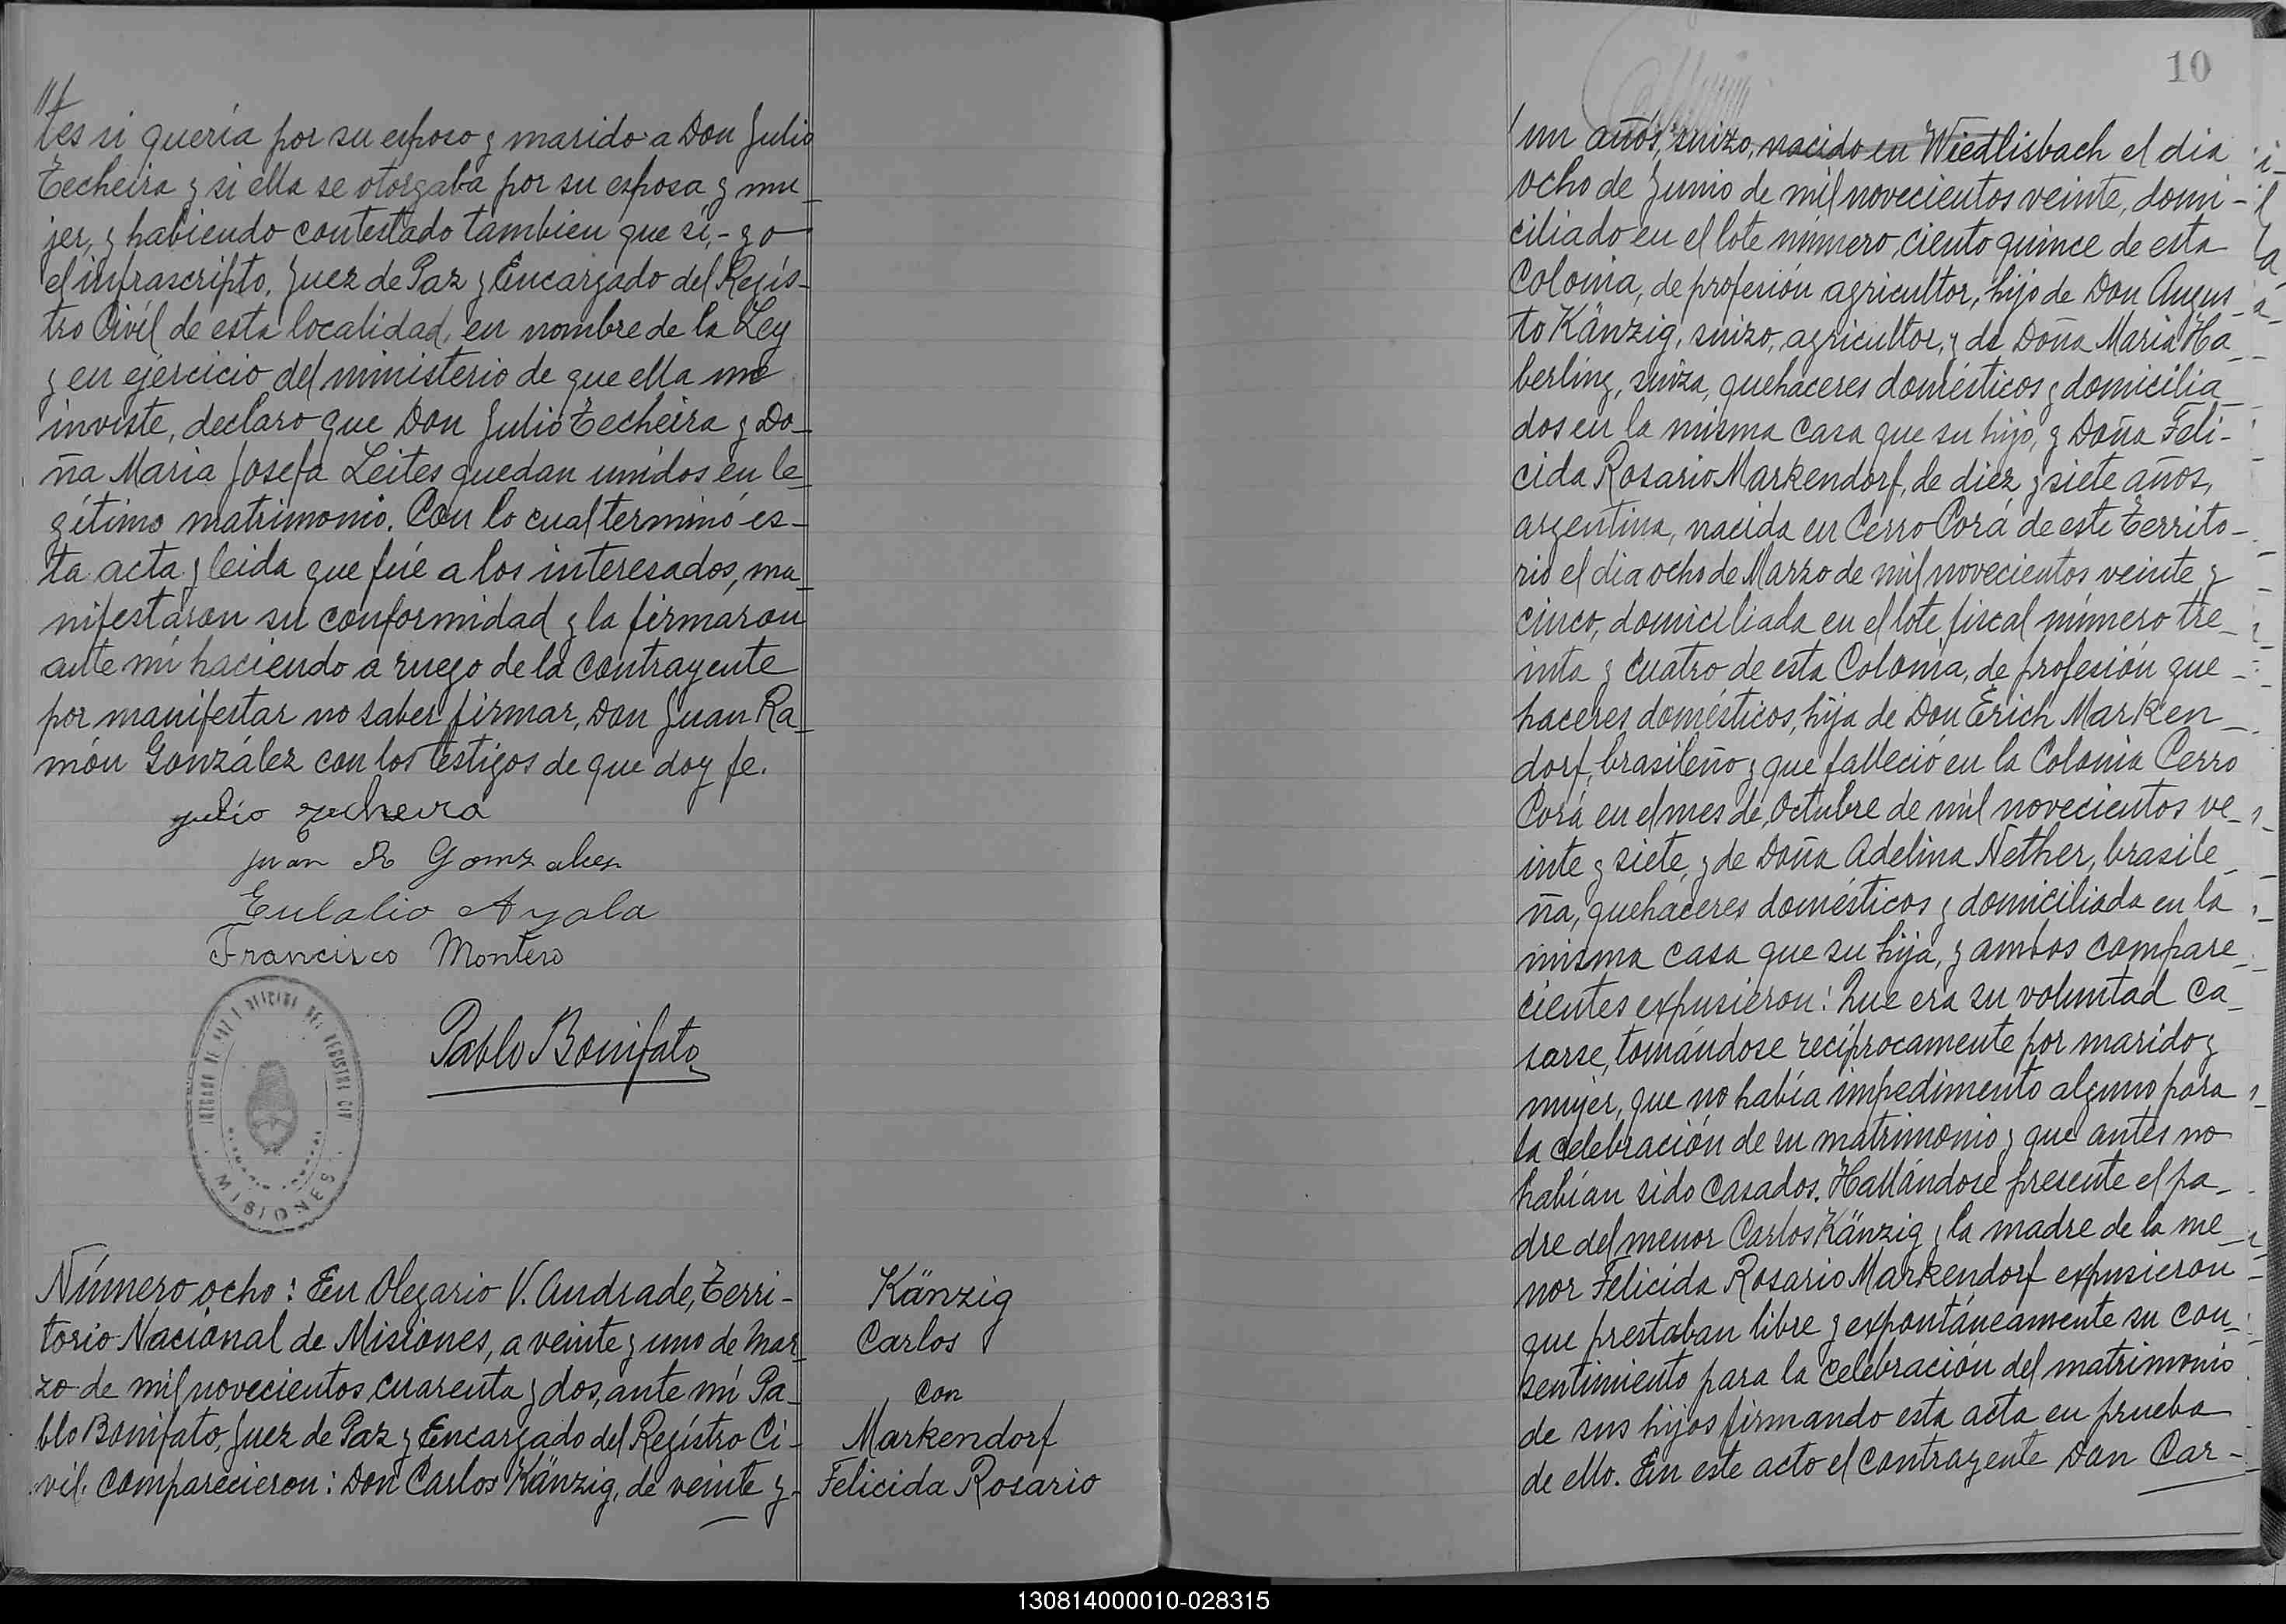 tes si quería por su esposo y marido a Don Julio
Techeira y si ella se otorgaba por su esposa y mu_
jer, y habiendo contestado tambien que si,- yo
el infrascripto, Juez de Paz y Encargado del Regis-
tro Civíl de esta localidad, en nombre de la Ley
y en ejercicio del ministerio de que ella me
inviste, declaro que Don Julio Techeira y Do_
ña Maria Josefa Leites quedan unidos en le_
gítimo matrimonio. Con lo cual terminó es_
ta acta y leida que fué a los interesados, ma_
nifestaron su conformidad y la firmaron
ante mi haciendo a ruego de la contrayente
por manifestar no saber firmar, Don Juan Ra_
món González con los testigos de que doy fe.
julio Techeira
juan R Gonzalez
Eulalio Ayala
Francisco Montero
Pablo Bonifato
JUZGADO DE PAZ Y OFICINA DEL REGISTRO CIV
MISIONES
Número ocho: En Olegario V. Andrade, Terri-
torio Nacional de Misiones, a veinte y uno de Mar_
zo de mil novecientos cuarenta y dos, ante mi Pa_
blo Bonifato, Juez de Paz y Encargado del Regístro Ci-
vil. comparecieron: Don Carlos Känzig, de veinte y
Känzig
Carlos
con
Markendorf
Felicida Rosario
10
un años, suizo, nacido en Wiedlisbach el dia
ocho de Junio de mil novecientos veinte, domi-
ciliado en el lote número ciento quince de esta
Colonia, de profesión agricultor, hijo de Don Augus_
to Känzig, suizo, agricultor, y de Doña Maria Ha_
berling, suiza, quehaceres domésticos y domicilia_
dos en la misma casa que su hijo, y Doña Feli-
cida Rosario Markendorf, de diez y siete años,
argentina, nacida en Cerro Corá de este Territo-
rio el dia ocho de Marzo de mil novecientos veinte y
cinco, domiciliada en el lote fiscal número tre_
inta y cuatro de esta Colonia, de profesión que_
haceres domésticos, hija de Don Erich Marken_
dorf, brasileño y que falleció en la Colonia Cerro
Corá en el mes de Octubre de mil novecientos ve_
inte y siete, y de Doña Adelina Nether, brasile_
ña, quehaceres domésticos y domiciliada en la
misma casa que su hija, y ambos compare_
cientes expusieron: Que era su voluntad ca_
sarse, tomándose recíprocamente por marido y
mujer, que no había impedimento alguno para
la celebración de su matrimonio y que antes no
habían sido casados. Hallándose presente el pa_
dre del menor Carlos Känzig y la madre de la me_
nor Felicida Rosario Markendorf expusieron
que prestaban libre y expontáneamente su con_
sentimiento para la celebración del matrimonio
de sus hijos firmando esta acta en prueba
de ello. En este acto el contrayente Don Car-
130814000010-028315